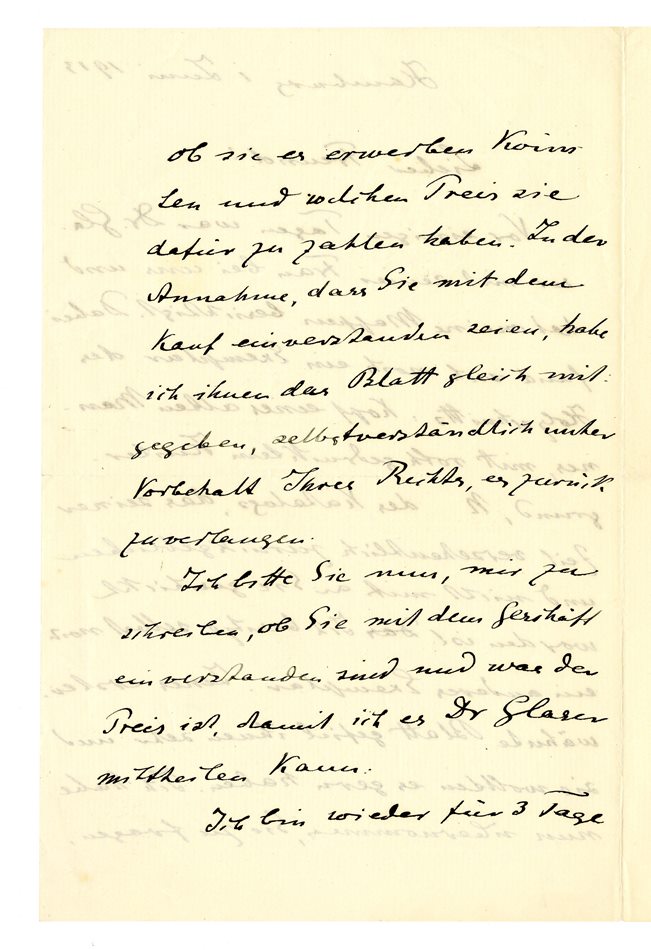 ob sie es erwerben könn
ten und welchen Preis sie
dafür zu zahlen haben. In der
Annahme, dass Sie mit dem
Kauf einverstanden seien, habe
ich ihnen das Blatt gleich mit-
gegeben, selbstverständlich unter
Vorbehalt Ihres Rechts, es zurück
zuverlangen.
Ich bitte Sie nun, mir zu
schreiben, ob Sie mit dem Geschäft
einverstanden sind und was der
Preis ist, damit ich es Dr Glaser
mittheilen kann.
Ich bin wieder für 3 Tage